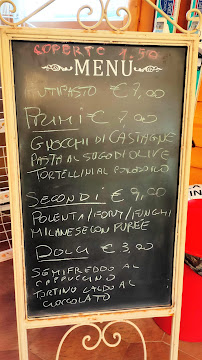 COPERTO 1.50
MENU
ANTIPASTO € 7,00
PRIMI € 7,00
GNOCCHI DI CASTAGNE
PASTA AL SUGO DI OLIVE
TORTELLINI AL POMODORO
SECONDI € 9,00
POLENTA/FORM/FUNGHI
MILANESE CON PUREE
DOLCI € 3,00
SEMIFREDDO AL
CAPPUCCINO
TORTINO CALDO AL
CIOCCOLATO